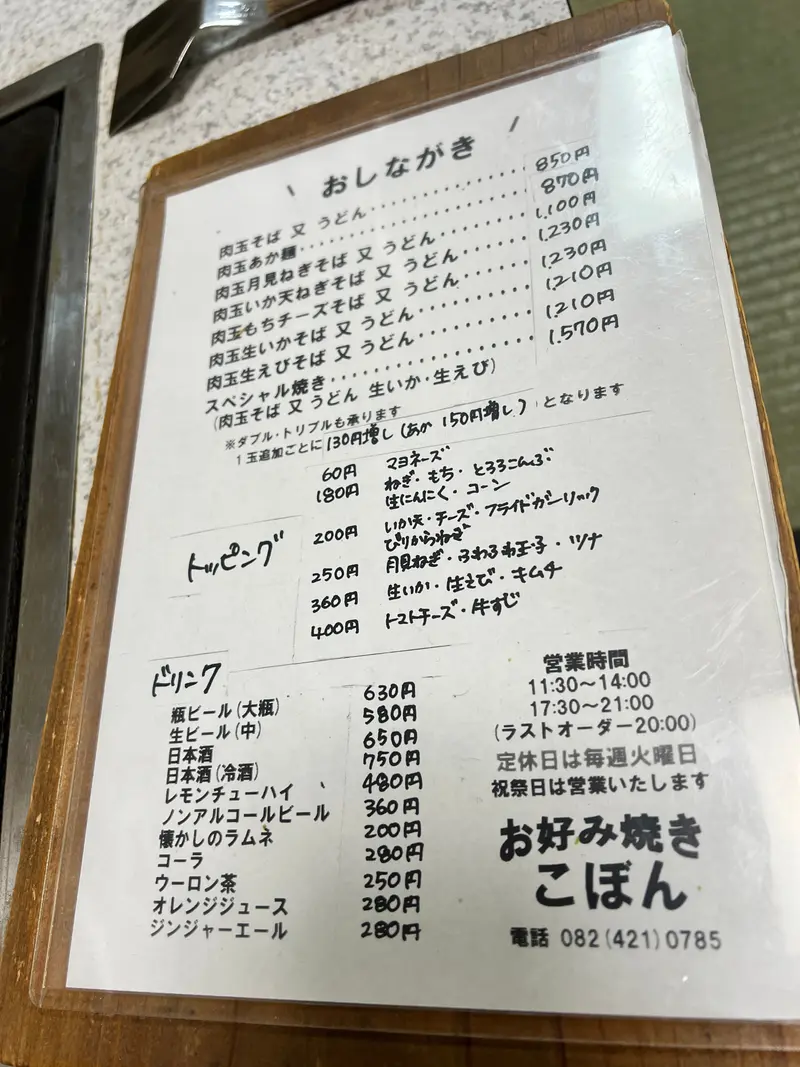 おしながき
肉玉そば 又 うどん 850円
肉玉あか麺 870円
肉玉月見ねぎそば 又 うどん 1,100円
肉玉いか天ねぎそば 又 うどん 1,230円
肉玉もちチーズそば 又 うどん 1,230円
肉玉生いかそば 又 うどん 1,210円
肉玉生えびそば 又 うどん 1,210円
スペシャル焼き 1,570円
(肉玉そば 又 うどん 生いか・生えび)
※ダブル・トリプルも承ります
1玉追加ごとに 130円増し(あか 150円増し)となります
トッピング
60円 マヨネーズ
180円 ねぎ・もち・とろろこんぶ
生にんにく・コーン
200円 いか天・チーズ・フライドガーリック
ぴりからねぎ
250円 月見ねぎ・ふわふわ玉子・ツナ
360円 生いか・生えび・キムチ
400円 トマトチーズ・牛すじ
ドリンク
瓶ビール(大瓶) 630円
生ビール(中) 580円
日本酒 650円
日本酒(冷酒) 750円
レモンチューハイ 480円
ノンアルコールビール 360円
懐かしのラムネ 200円
コーラ 280円
ウーロン茶 250円
オレンジジュース 280円
ジンジャーエール 280円
営業時間
11:30〜14:00
17:30〜21:00
(ラストオーダー20:00)
定休日は毎週火曜日
祝祭日は営業いたします
お好み焼き
こぼん
電話 082(421)0785